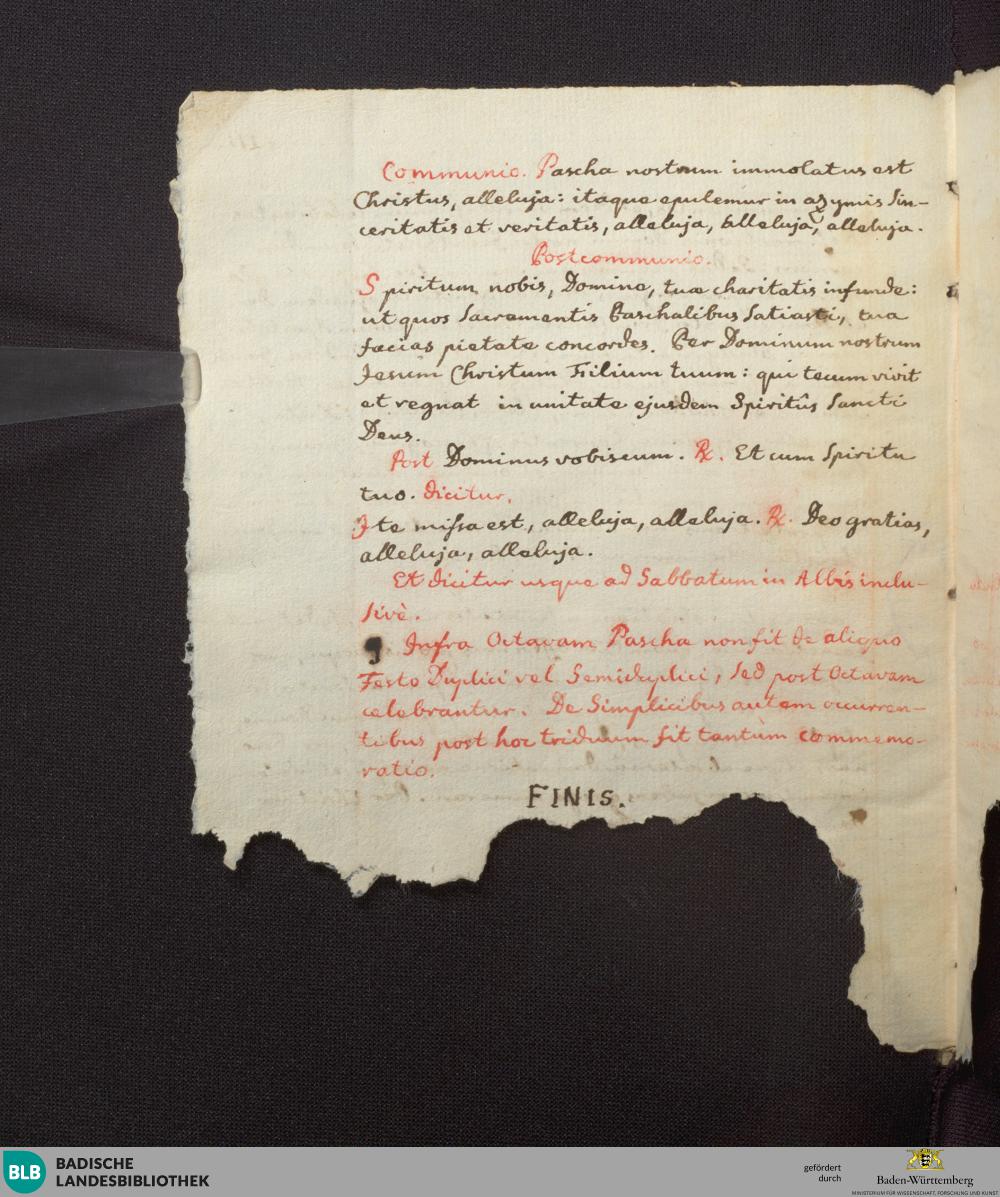 Communio. Pascha nostrum immolatus est
Christus, alleluja: itaque epulemur in azymis sin-
ceritatis et veritatis, alleluja, alleluja, alleluja.
Postcommunio.
Spiritum nobis, Domine, tuæ charitatis infunde:
ut quos Sacramentis Paschalibus satiasti, tua
facias pietate concordes. Per Dominum nostrum
Jesum Christum Filium tuum: qui tecum vivit
et regnat in unitate ejusdem Spiritûs Sancti
Deus.
Post Dominus vobiscum. ℟. Et cum Spiritu
tuo. dicitur.
Ite missa est, alleluja, alleluja. ℟. Deo gratias,
alleluja, alleluja.
Et dicitur usque ad Sabbatum in Albis inclu-
sivè.
Infra Octavam Paschæ non fit de aliquo
Festo Duplici vel Semiduplici, sed post Octavam
celebrantur. De Simplicibus autem occurren-
tibus post hoc triduum fit tantùm commemo-
ratio.
FINIS.
BLB BADISCHE
LANDESBIBLIOTHEK
gefördert
durch
Baden-Württemberg
MINISTERIUM FÜR WISSENSCHAFT, FORSCHUNG UND KUNST